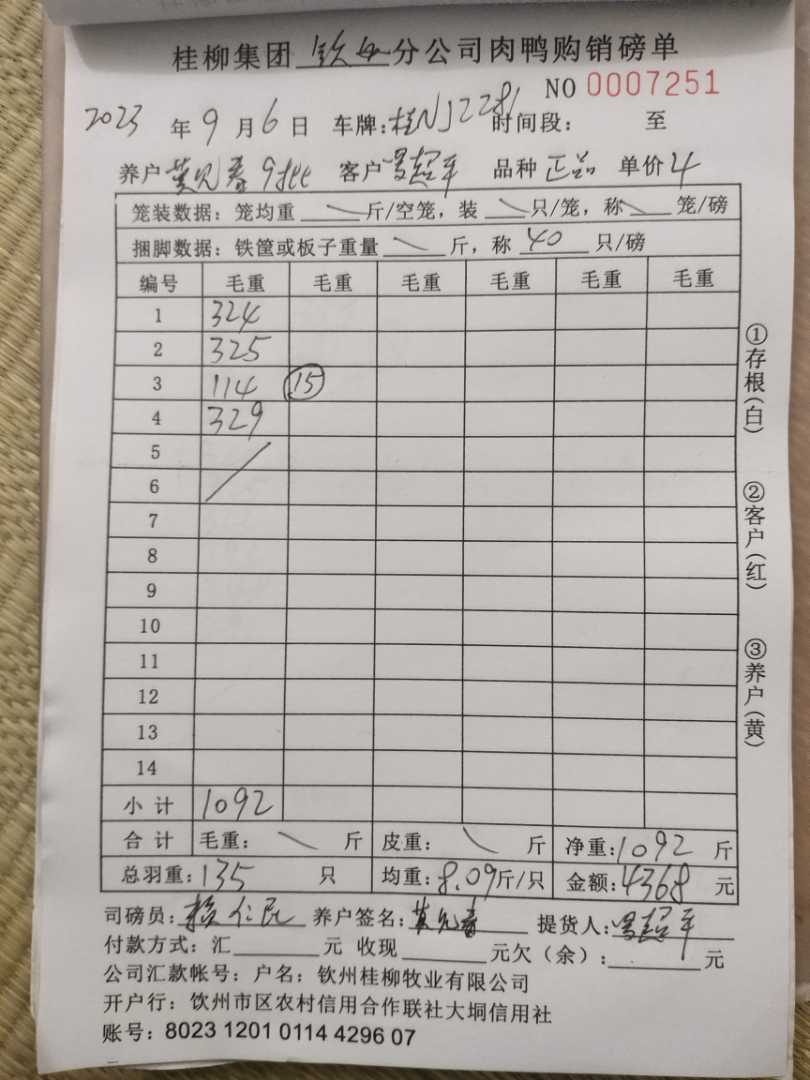 桂柳集团 钦州 分公司肉鸭购销磅单
NO 0007251
2023 年 9 月 6 日 车牌:桂NJ2281 时间段: 至
养户 黄 春 客户 超平 品种 正品 单价 4
笼装数据:笼均重 斤/空笼,装 只/笼,称 笼/磅
捆脚数据:铁筐或板子重量 斤,称 40 只/磅
编号 毛重 毛重 毛重 毛重 毛重 毛重
1 324
2 325
3 114 15
4 329
5
6
7
8
9
10
11
12
13
14
小计 1092
合计 毛重: 斤 皮重: 斤 净重:1092 斤
总羽重:135 只 均重:8.09斤/只 金额:4368 元
司磅员: 仁民 养户签名:黄 春 提货人: 超平
付款方式:汇 元 收现 元欠(余): 元
公司汇款帐号:户名:钦州桂柳牧业有限公司
开户行:钦州市区农村信用合作联社大垌信用社
账号:8023 1201 0114 4296 07
①存根(白)
②客户(红)
③养户(黄)